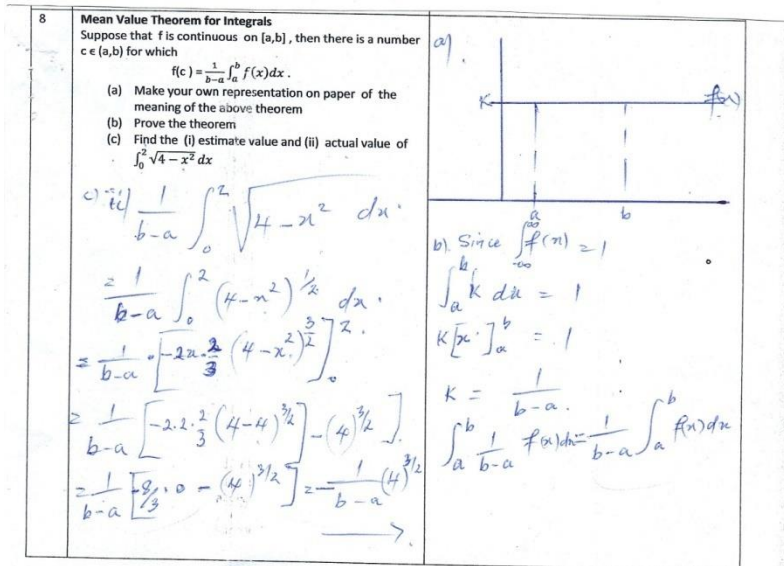 8
Mean Value Theorem for Integrals
Suppose that f is continuous on [a,b] , then there is a number
c ϵ (a,b) for which
f(c ) = \frac{1}{b-a} ∫_a^b f(x)dx .
(a) Make your own representation on paper of the
meaning of the above theorem
(b) Prove the theorem
(c) Find the (i) estimate value and (ii) actual value of
∫_0^2 √(4 − x²) dx
c) ii) \frac{1}{b-a} ∫_0^2 √(4-x²) dx.
= \frac{1}{b-a} ∫_0^2 (4-x²)^{1/2} dx.
= \frac{1}{b-a} · [-2x.\frac{2}{3} (4-x²)^{3/2}]_0^2.
= \frac{1}{b-a} [-2.2.\frac{2}{3} (4-4)^{3/2}] - (4)^{3/2}].
= \frac{1}{b-a} [-8/3 . 0 - (4)^{3/2}] = -\frac{1}{b-a} (4)^{3/2}
a).
K
f(x)
a
b
b). Since ∫_{-∞}^{∞} f(x) = 1
∫_a^b K dx = 1
K[x.]_a^b = 1
K = \frac{1}{b-a}.
∫_a^b \frac{1}{b-a} f(x)dx = \frac{1}{b-a} ∫_a^b f(x)dx